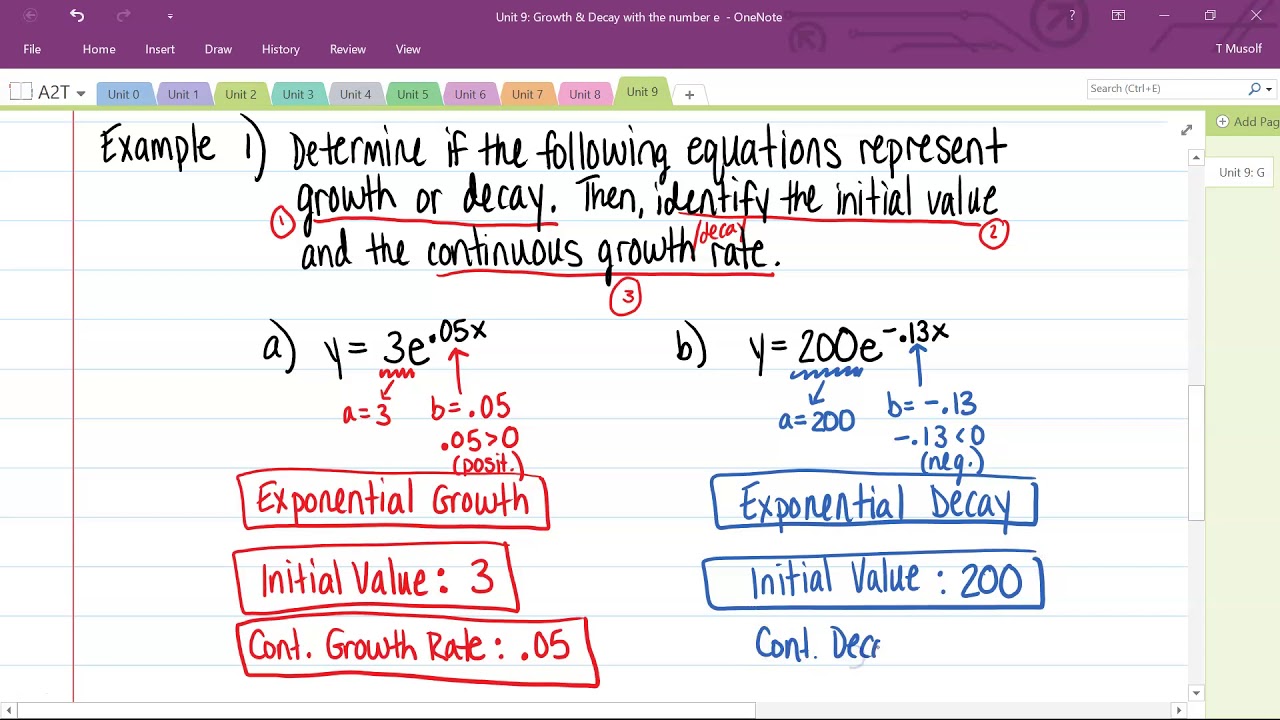 Unit 9: Growth & Decay with the number e - OneNote
?
File Home Insert Draw History Review View
T Musolf
A2T
Unit 0 Unit 1 Unit 2 Unit 3 Unit 4 Unit 5 Unit 6 Unit 7 Unit 8 Unit 9 +
Search (Ctrl+E)
Add Pag
Unit 9: G
Example 1) Determine if the following equations represent
growth or decay. Then, identify the initial value
1
2
/decay
and the continuous growth rate.
3
a) y = 3e^.05x
a=3
b=.05
.05>0
(posit.)
Exponential Growth
Initial Value: 3
Cont. Growth Rate: .05
b) y = 200e^-.13x
a=200
b=-.13
-.13<0
(neg.)
Exponential Decay
Initial Value: 200
Cont. Dec